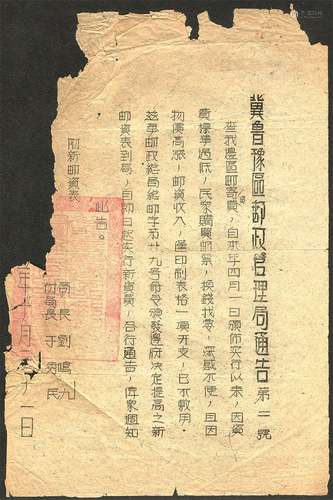 冀鲁豫區邮政管理局通告 第二號
查我邊區邮寄費，自來年四月一日頒佈实行以來，因資
費標準過低，民衆購買邮票，換錢找零，深感不便，且因
物價高漲，邮資收入，僅印刷表格一項开支，已不敷用。
兹奉邮政總局總邮字第廿九号命令頒發遵府决定提高之新
邮資表到局，自 日起实行新資費，合行通告，俾衆週知
此告。
附新邮資表
局長 劉鳴九
副局長 于 民
年十月 十一日